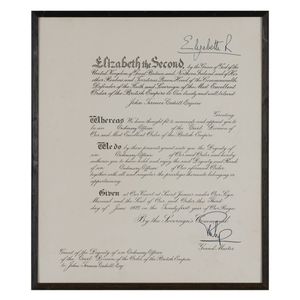 Elizabeth R
Elizabeth the Second, by the Grace of God of the
United Kingdom of Great Britain and Northern Ireland and of Her
other Realms and Territories Queen, Head of the Commonwealth,
Defender of the Faith and Sovereign of the Most Excellent
Order of the British Empire to Our trusty and well beloved
John Esquire
Greeting
Whereas We have thought fit to nominate and appoint you to
be an Ordinary Officer of the Civil Division of
Our said Most Excellent Order of the British Empire
We do by these presents grant unto you the Dignity of
an Ordinary Officer of Our said Order and hereby
authorise you to have hold and enjoy the said Dignity and Rank
of an Ordinary Officer of Our aforesaid Order
together with all and singular the privileges thereunto belonging or
appertaining.
Given at Our Court at Saint James's under Our Sign
Manual and the Seal of Our said Order this Third
day of June in the year of Our Reign
By the Sovereign's Command.
Grand Master
Grant of the Dignity of an Ordinary Officer
of the Civil Division of the Order of the British Empire
to John Esq